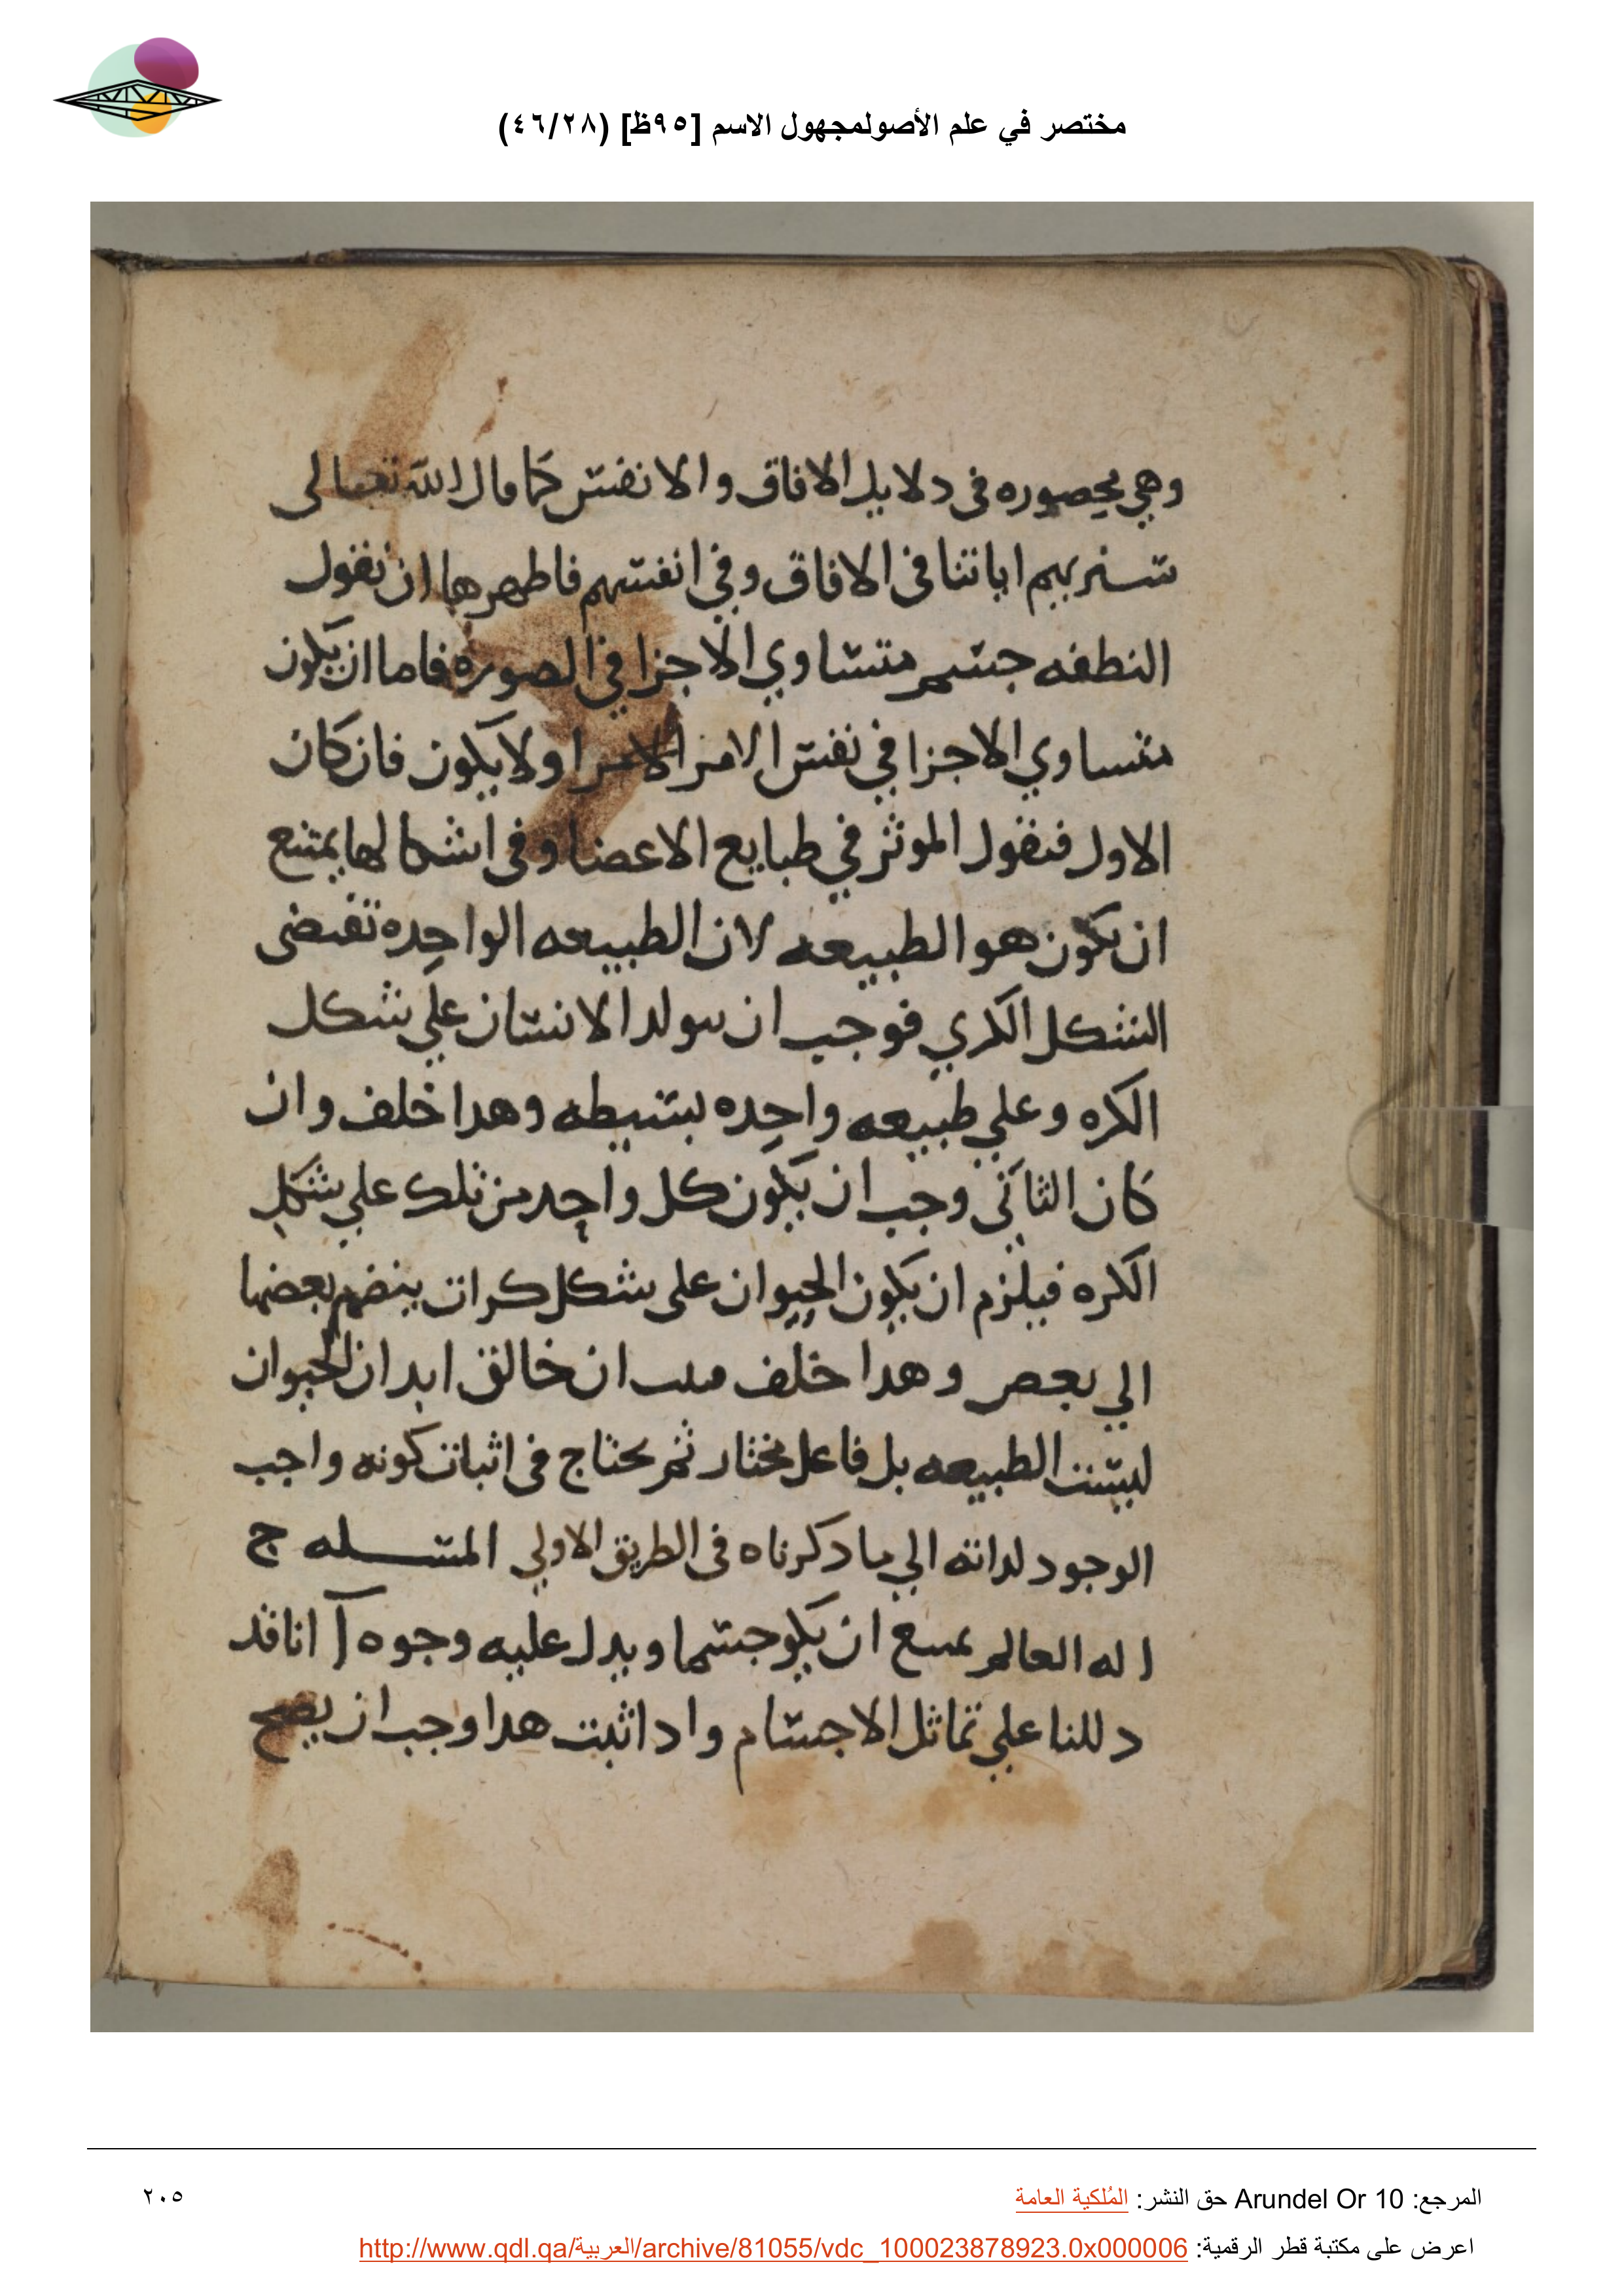 مختصر في علم الأصولمجهول الاسم [٩٥ظ] (٤٦/٢٨)
وهي محصوره في دلايل الافاق والانفس كما قال الله تعالى
سنريهم اياتنا في الافاق وفي انفسهم فاطهرها ان نقول
النطفه جسم متساوي الاجزا في الصوره فاما ان يكون
متساوي الاجزا في نفس الامر الامرا ولا يكون فان كان
الاول فنقول الموثر في طبايع الاعضا وفي اشكالها يمتنع
ان يكون هو الطبيعه لان الطبيعه الواحده تقتضى
الشكل الكري فوجب ان سولد الانسان علي شكل
الكره وعلي طبيعه واحده بسيطه وهدا خلف وان
كان الثاني وجب ان يكون كل واحد من تلك علي شكل
الكره فيلزم ان يكون الحيوان على شكل كرات ينضم بعضها
الي بعص وهدا خلف فىىب ان خالق ابدان الحيوان
ليست الطبيعه بل فاعل مختار ثم يحتاج في اثبات كونه واجب
الوجود لداته الي ما دكرناه في الطريق الاولي المسله ج
اله العالم يمىىع ان يكو جسما ويدل عليه وجوه آ انا قد
دللنا علي تماثل الاجسام وادا ثبت هدا وجب ان يصح
المرجع: Arundel Or 10 حق النشر: المُلكية العامة
٢٠٥
اعرض على مكتبة قطر الرقمية: http://www.qdl.qa/العربية/archive/81055/vdc_100023878923.0x000006